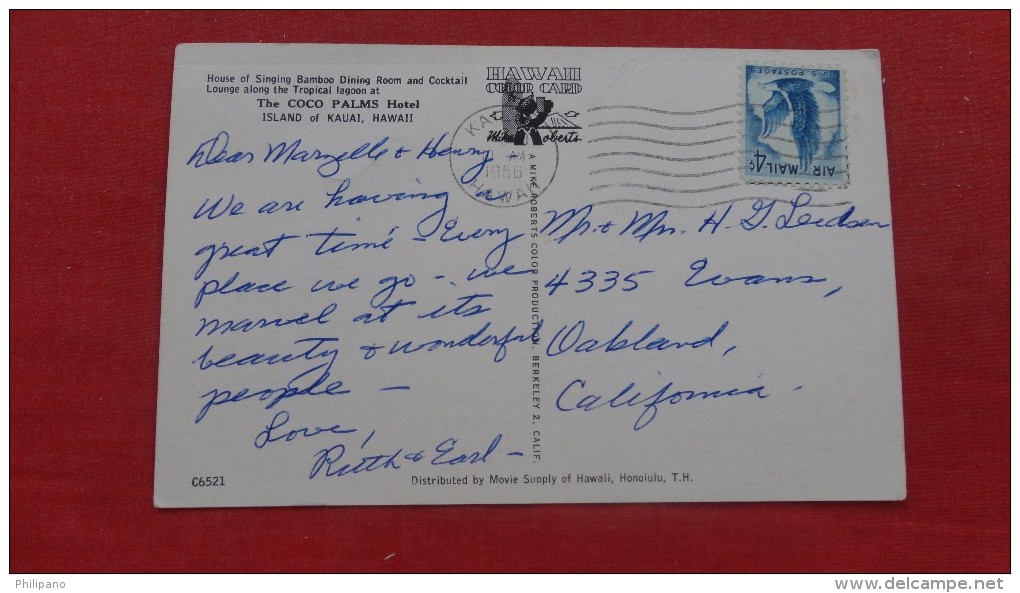 House of Singing Bamboo Dining Room and Cocktail
Lounge along the Tropical lagoon at
The COCO PALMS Hotel
ISLAND of KAUAI, HAWAII
HAWAII
COLOR CARD
Mike Roberts
1956
HAWAII
U.S. POSTAGE
4¢
AIR MAIL
Dear Marzelle & Henry -
We are having a
great time - Every
place we go - we
marvel at its
beauty & wonderful
people -
Love,
Ruth & Earl -
A MIKE ROBERTS COLOR PRODUCTION, BERKELEY 2, CALIF.
Mr. & Mrs. H. G.
4335 Evans,
Oakland,
California -
C6521
Distributed by Movie Supply of Hawaii, Honolulu, T.H.
Philipano
www.delcampe.net